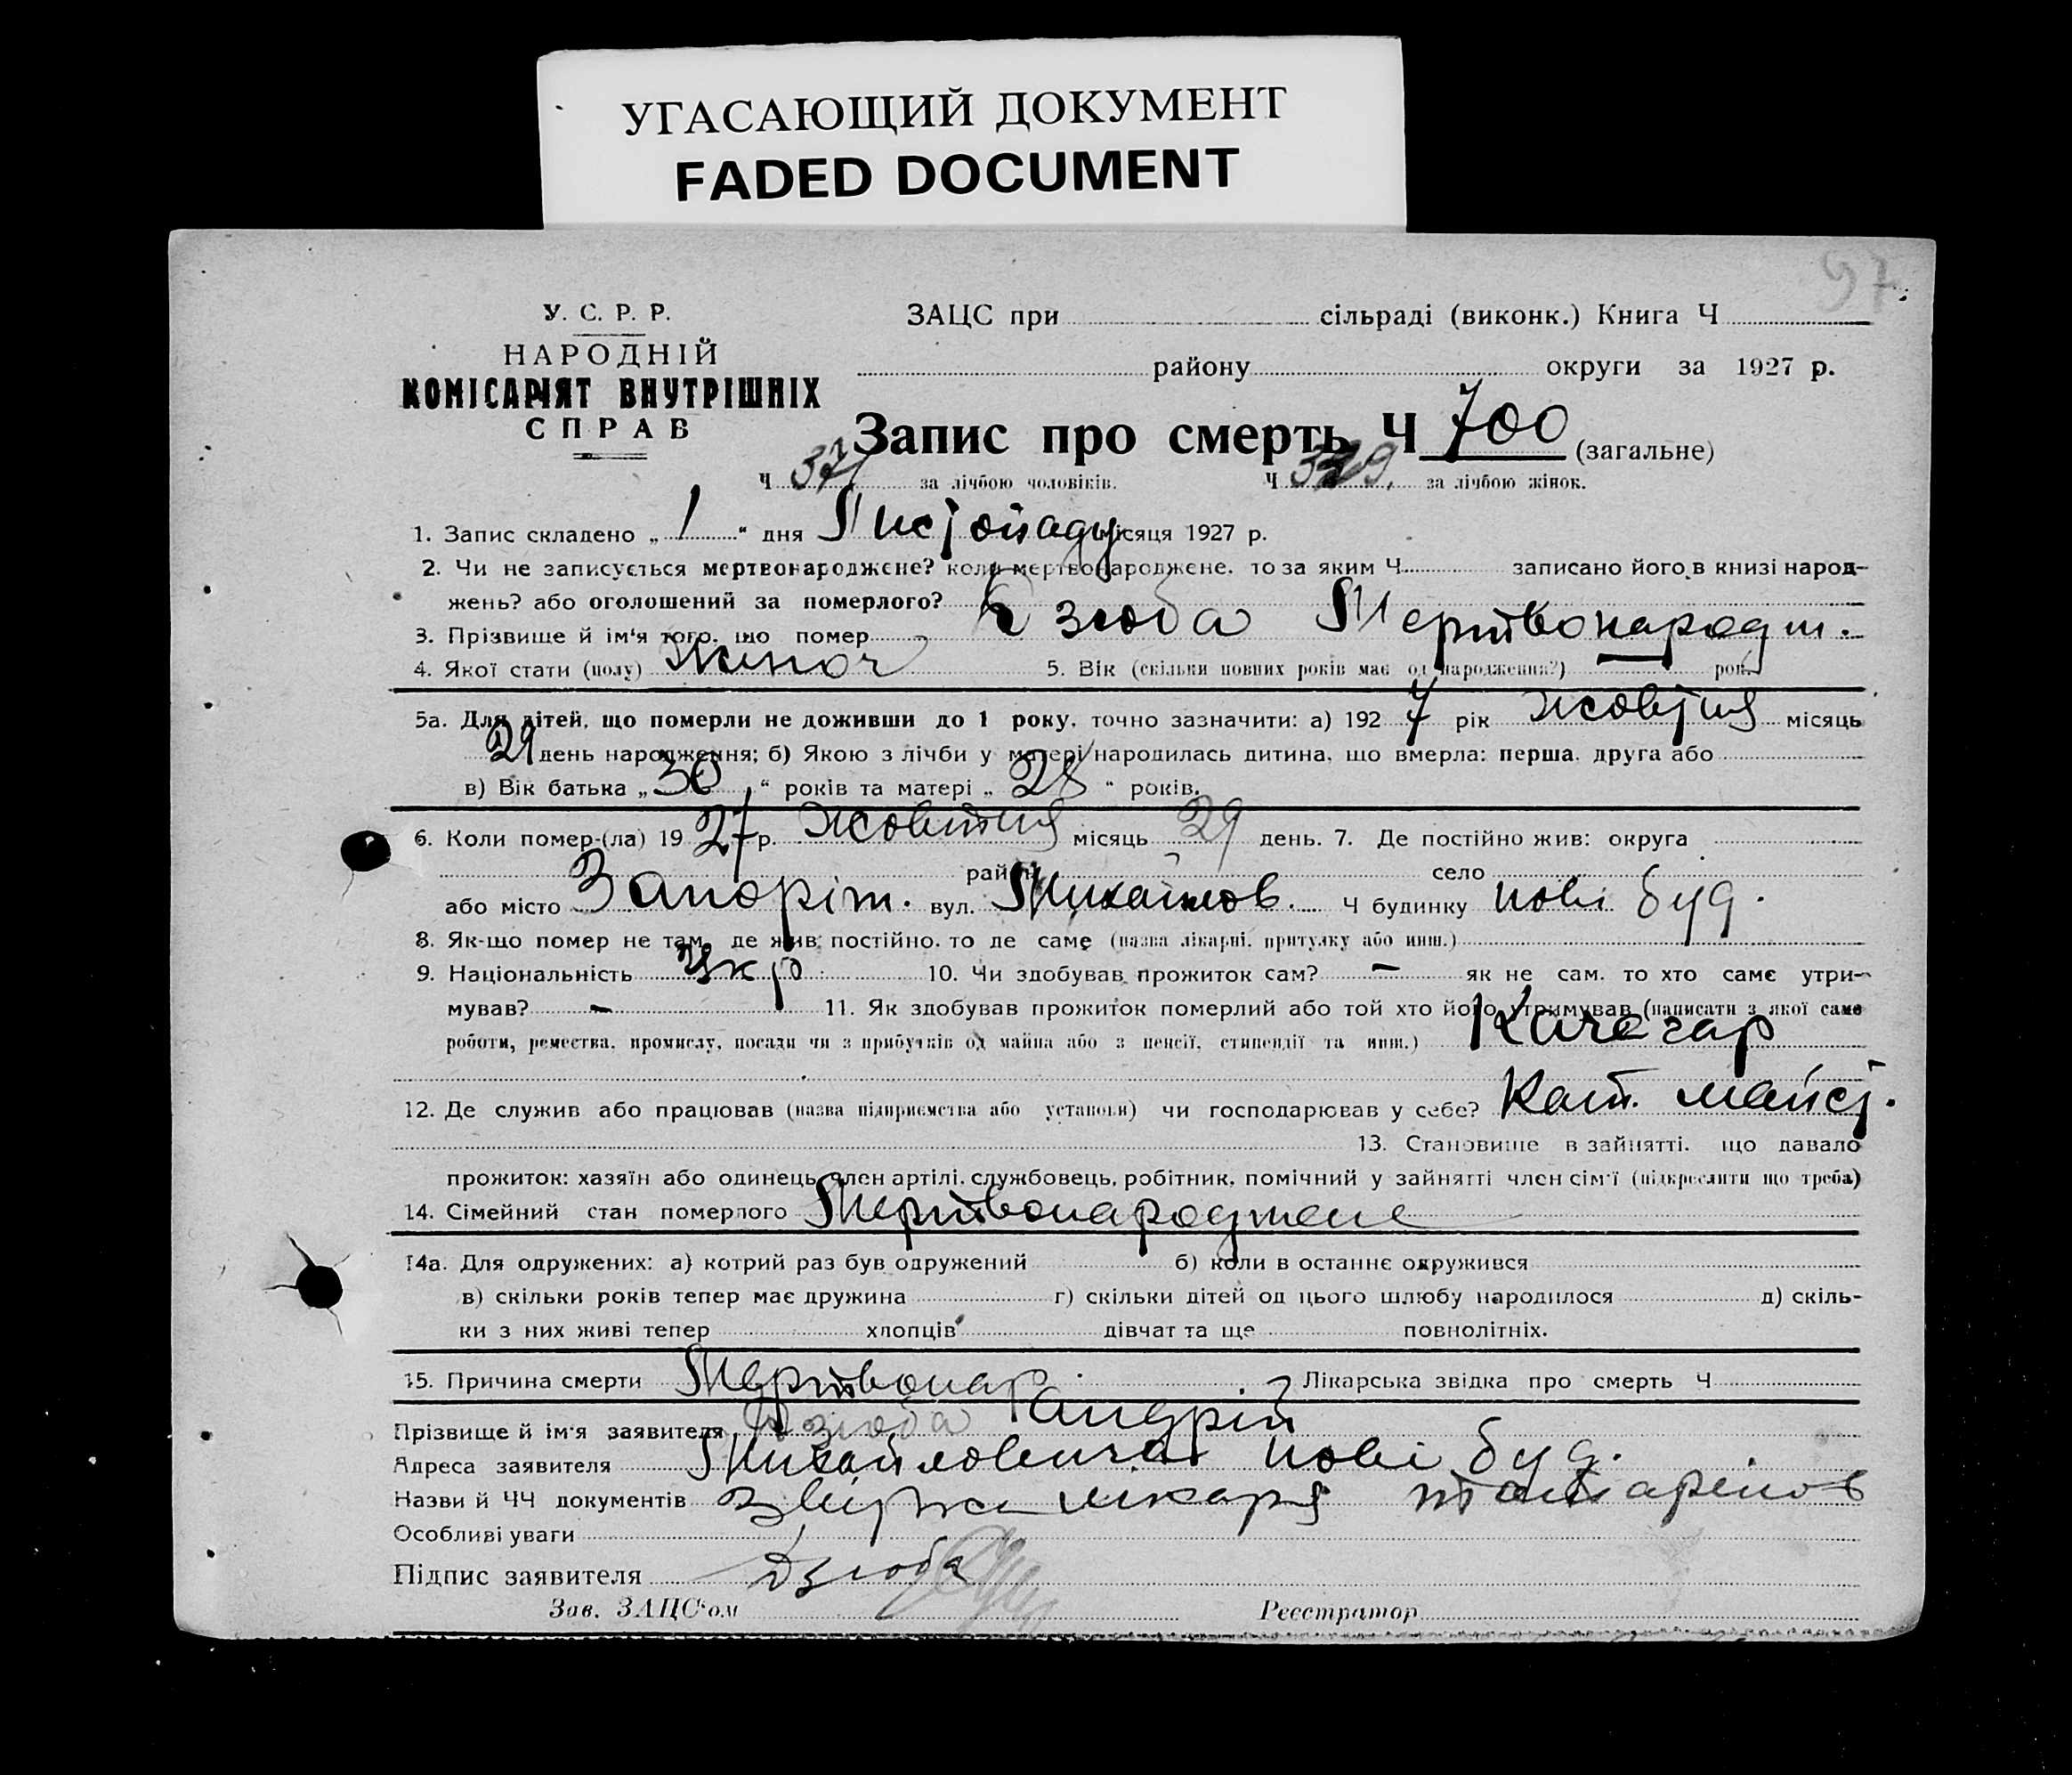 УГАСАЮЩИЙ ДОКУМЕНТ
FADED DOCUMENT
97
У. С. Р. Р.
НАРОДНІЙ
КОМІСАРІЯТ ВНУТРІШНІХ
СПРАВ
ЗАЦС при сільраді (виконк.) Книга Ч
району округи за 1927 р.
Запис про смерть Ч 700 (загальне)
Ч 371 за лічбою чоловіків. Ч 329. за лічбою жінок.
1. Запис складено „ 1 “ дня Листопаду місяця 1927 р.
2. Чи не записується мертвонароджене? коли мертвонароджене, то за яким Ч записано його в книзі народ-
жень? або оголошений за померлого?
3. Прізвище й ім'я того, що помер Дзюба Мертвонародж.
4. Якої статі (полу) жіноч 5. Вік (скільки повних років має од народження?) — рок.
5а. Для дітей, що померли не доживши до 1 року, точно зазначити: а) 192 7 рік жовтня місяць
29 день народження; б) Якою з лічби у матері народилась дитина, що вмерла: перша, друга або
в) Вік батька „ 30 “ років та матері „ 28 “ років.
6. Коли помер-(ла) 19 27 р. жовтня місяць 29 день. 7. Де постійно жив: округа
район село
або місто Запоріж. вул. Михайлов. Ч будинку нові буд.
8. Як-що помер не там, де жив постійно, то де саме (назва лікарні, притулку або инш.)
9. Національність Укр 10. Чи здобував прожиток сам? — як не сам, то хто саме утри-
мував? — 11. Як здобував прожиток померлий або той хто його утримував (написати з якої саме
роботи, ремества, промислу, посади чи з прибутків од майна або з пенсії, стипендії та инш.) Качегар
12. Де служив або працював (назва підприємства або установи) чи господарював у себе? Кат. майст.
13. Становище в зайнятті, що давало
прожиток: хазяїн або одинець, член артілі, службовець, робітник, помічний у зайнятті член сім'ї (підкреслити що треба)
14. Сімейний стан померлого Мертвонароджене
14а. Для одружених: а) котрий раз був одружений б) коли в останнє одружився
в) скільки років тепер має дружина г) скільки дітей од цього шлюбу народилося д) скіль-
ки з них живі тепер хлопців дівчат та ще повнолітніх.
15. Причина смерти Мертвонар. Лікарська звідка про смерть Ч
Прізвище й ім'я заявителя Дзюба Андрій
Адреса заявителя нові буд.
Назви й ЧЧ документів лікаря
Особливі уваги
Підпис заявителя Дзюба
Зав. ЗАЦС'ом Реєстратор